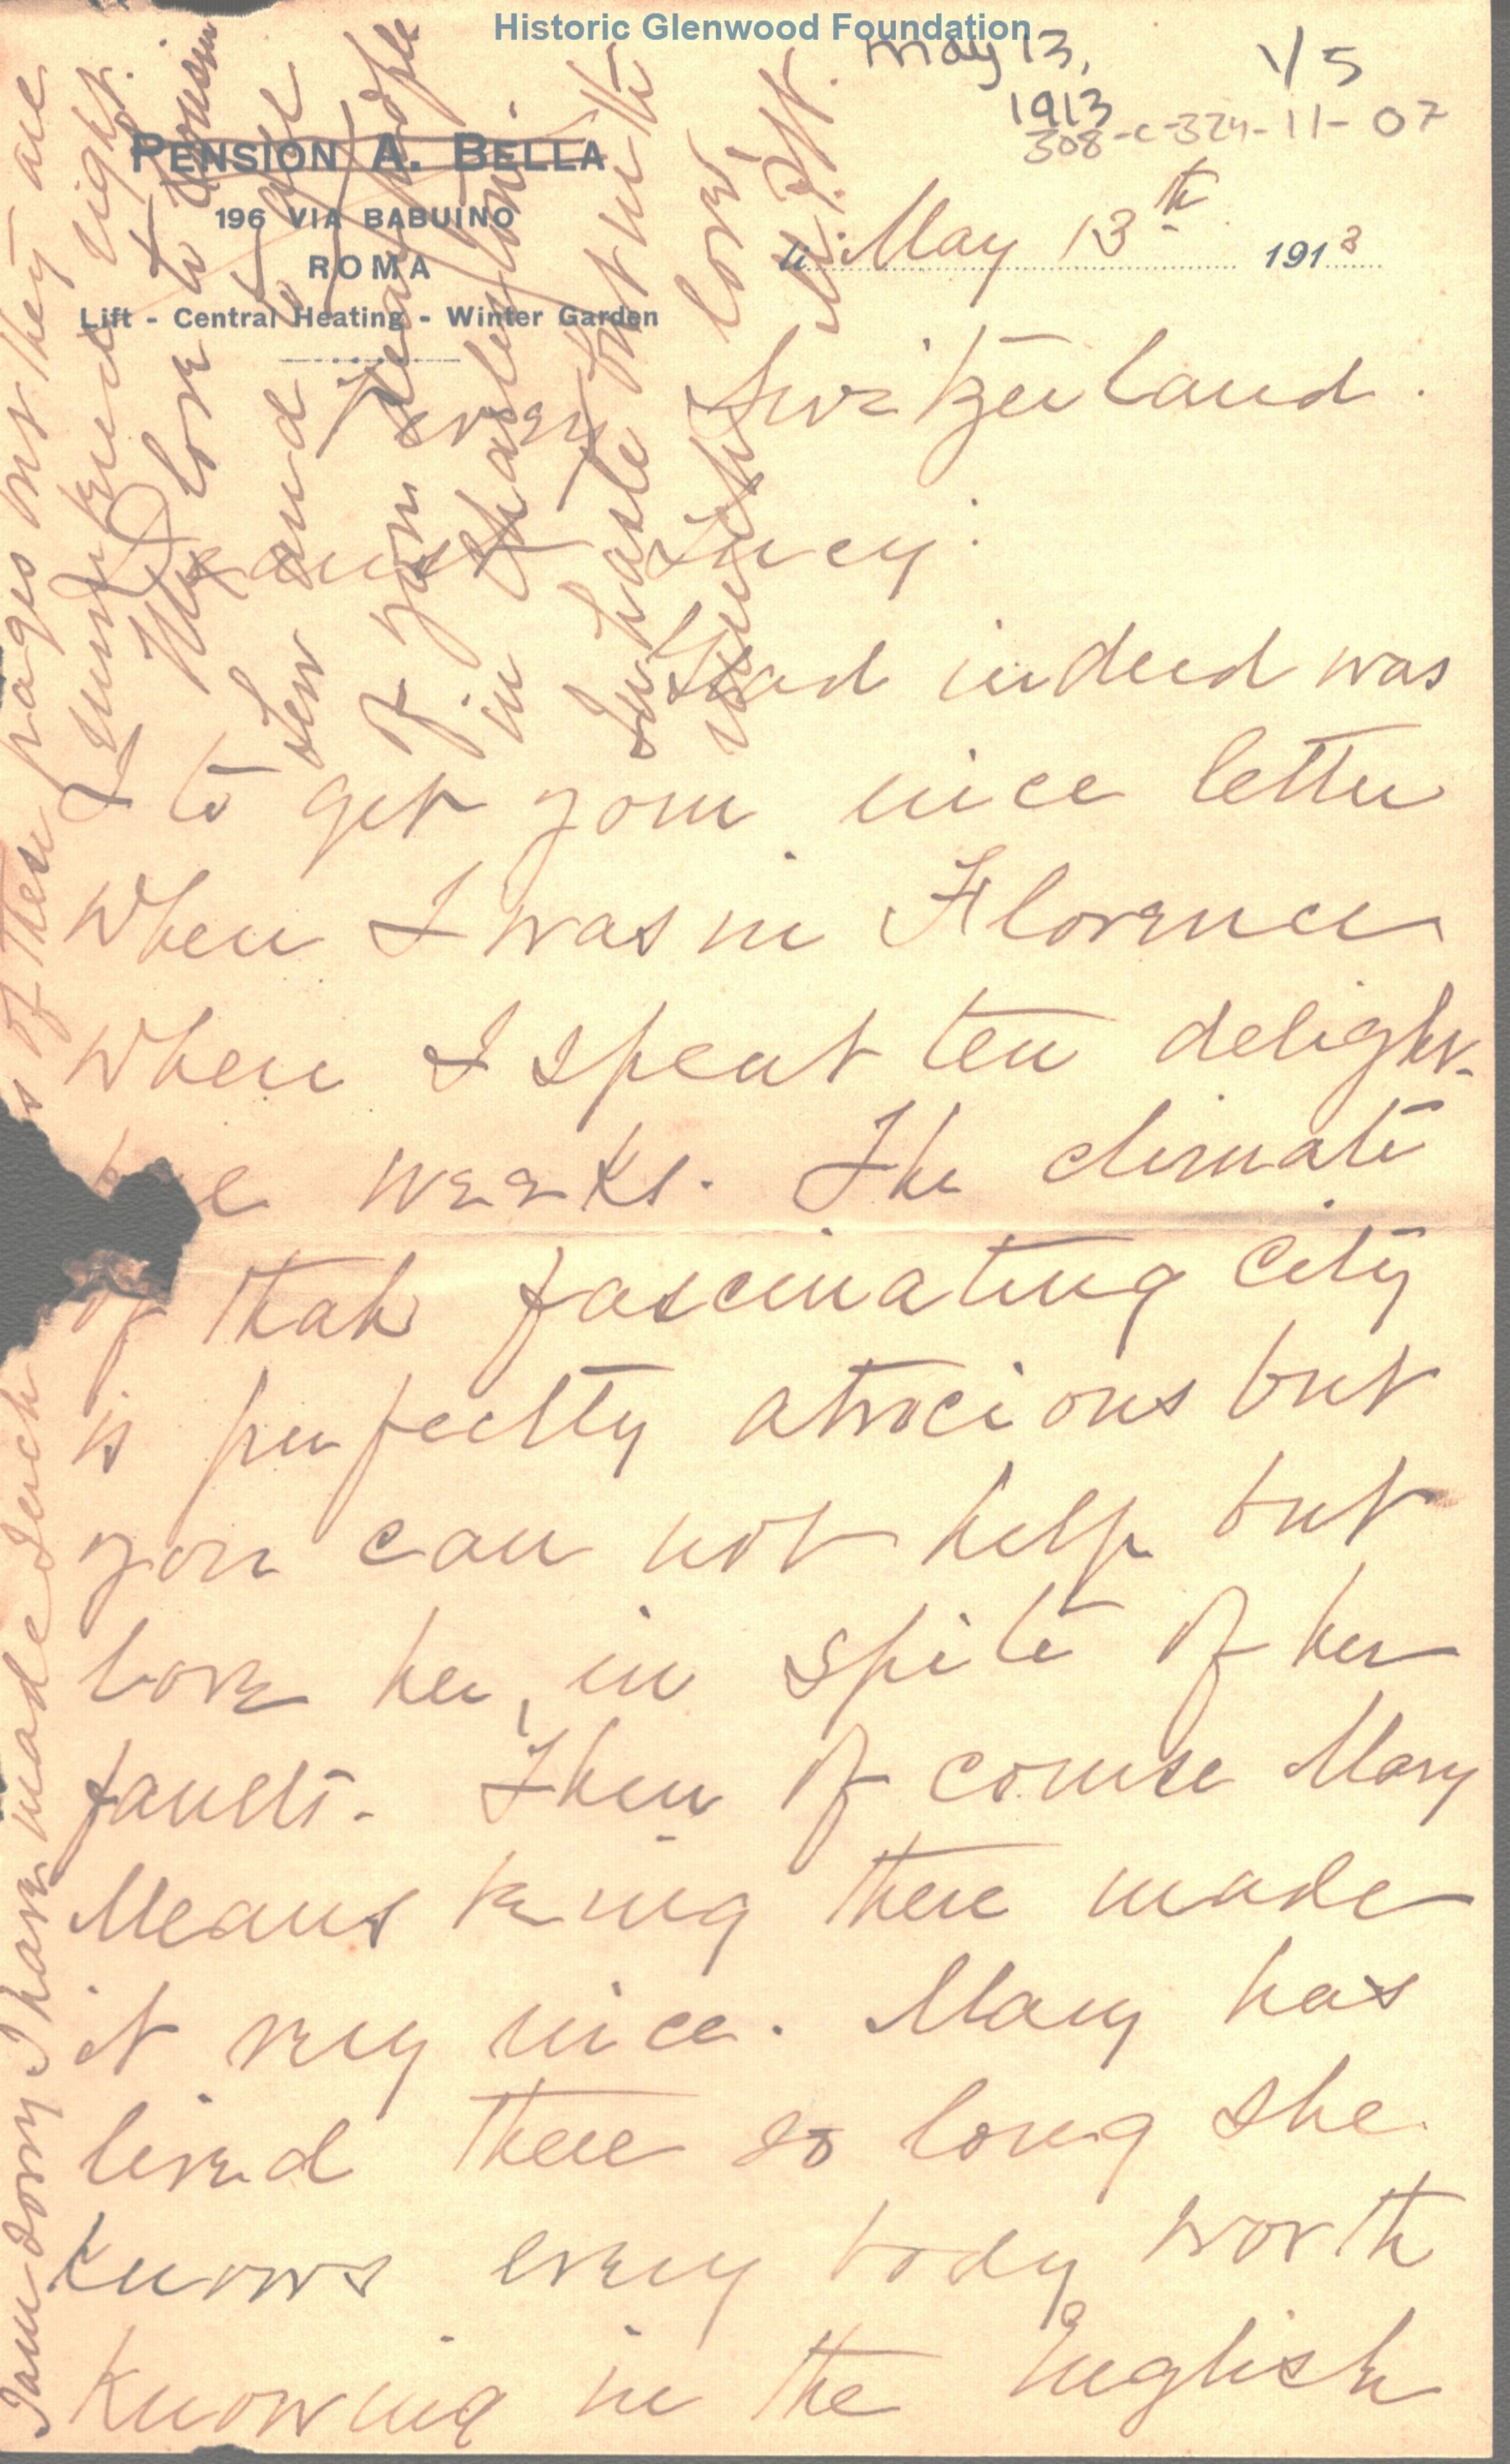 Historic Glenwood Foundation
May 13,
1913
1/5
308-c-324-11-07
PENSION A. BELLA
196 VIA BABUINO
ROMA
Lift - Central Heating - Winter Garden
li May 13th 1913
Vevey Switzerland.
Dearest Lucy:
Glad indeed was
I to get your nice letter
when I was in Florence
where I spent ten delight-
weeks. The climate
of that fascinating city
is perfectly atrocious but
you can not help but
love her, in spite of her
faults. Then of course Mary
Means being there made
it very nice. Mary has
lived there so long she
knows every body worth
knowing in the English
I am sorry I have made such
of these pages but they are
numbered right.
Much love to Cousin
Lew and
of your dear people
in
In haste but with
much love
M. M.